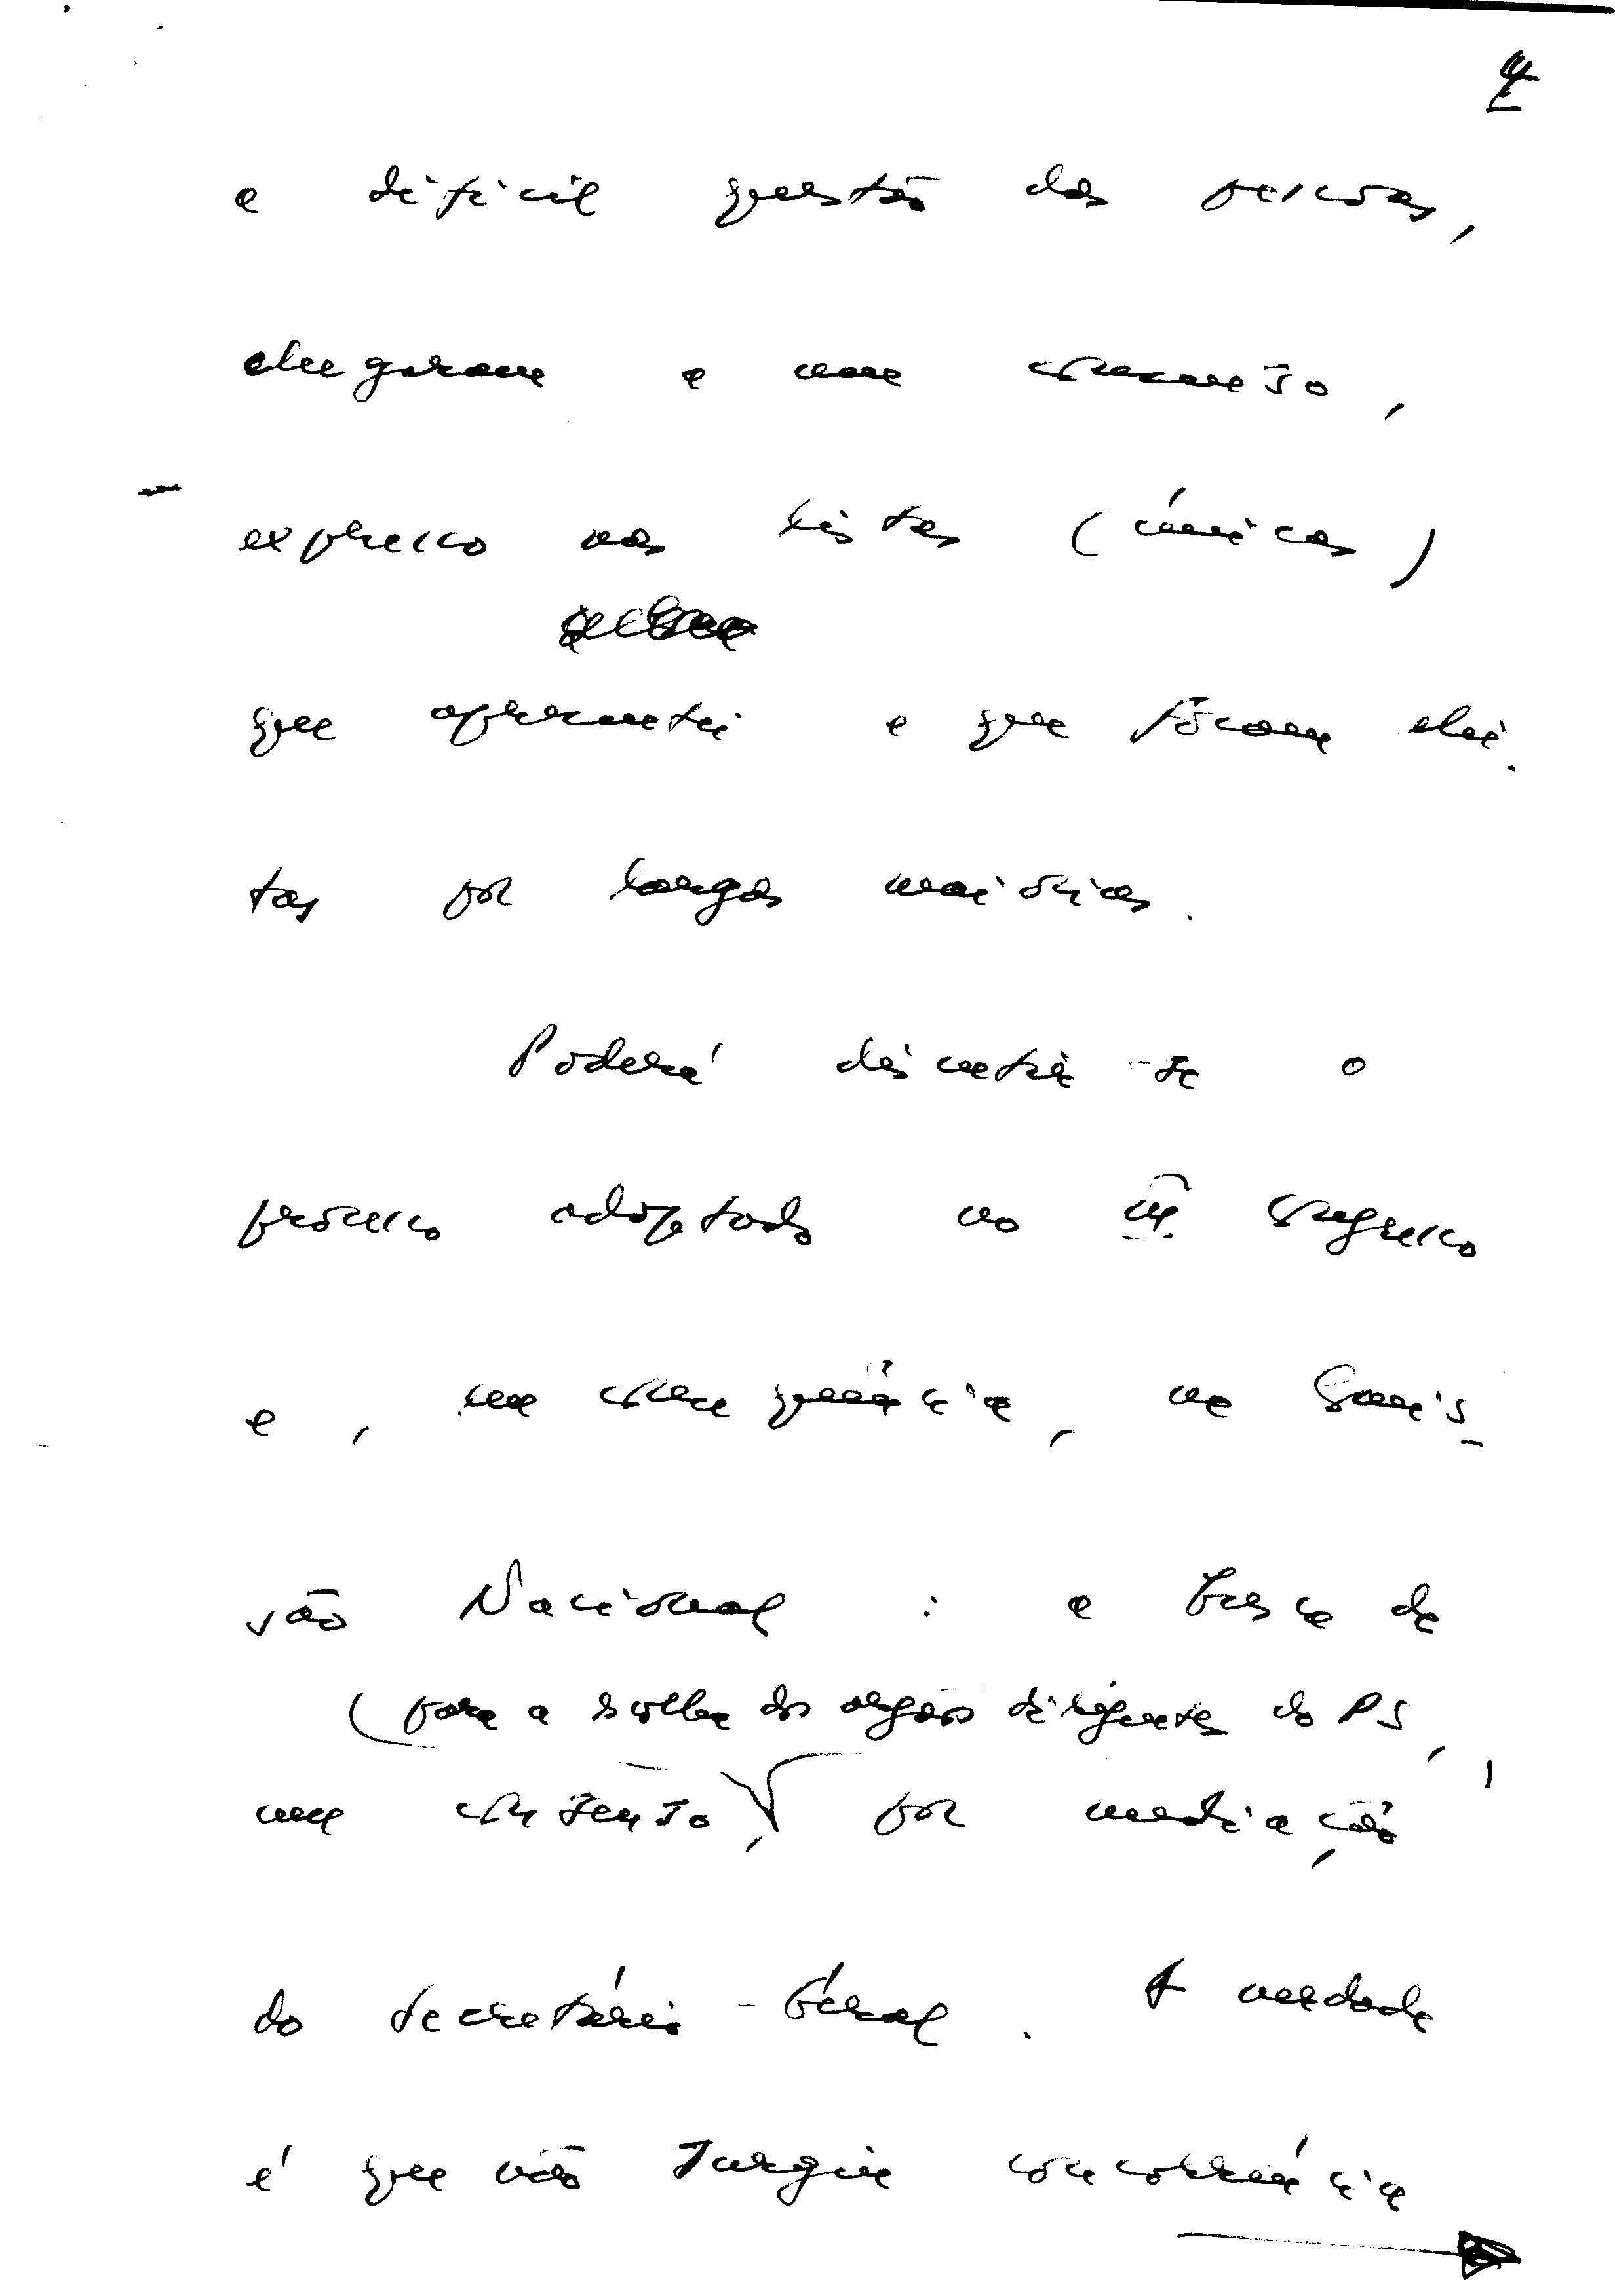 4
a difícil questão das pessoas,
chegaram a um consenso,
expresso nas listas (únicas)
que apresentei e que fôram elei-
tas por largas maiorias.
Poderá discutir-se o
processo adoptado no III Congresso
e, em consequência, na Comis-
são Nacional : a busca de
(para a escolha dos orgãos dirigentes do PS,
um consenso, por mediação
do Secretário-Géral. A verdade
é que não surgiu concorrência